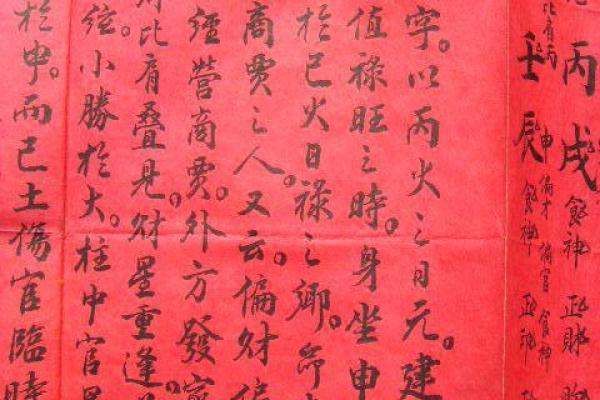 丙戌食神正財
比肩丙
壬辰
申偏才偏官食神
食神正
字。以丙火之日元。建
值祿旺之時。身坐申
於巳火日祿之鄉。命
商贾之人。又云。偏財
經營商贾。外方發家
比肩叠見。財星重逢。
弦。小勝於大。柱中官
於申。而己土傷官臨時